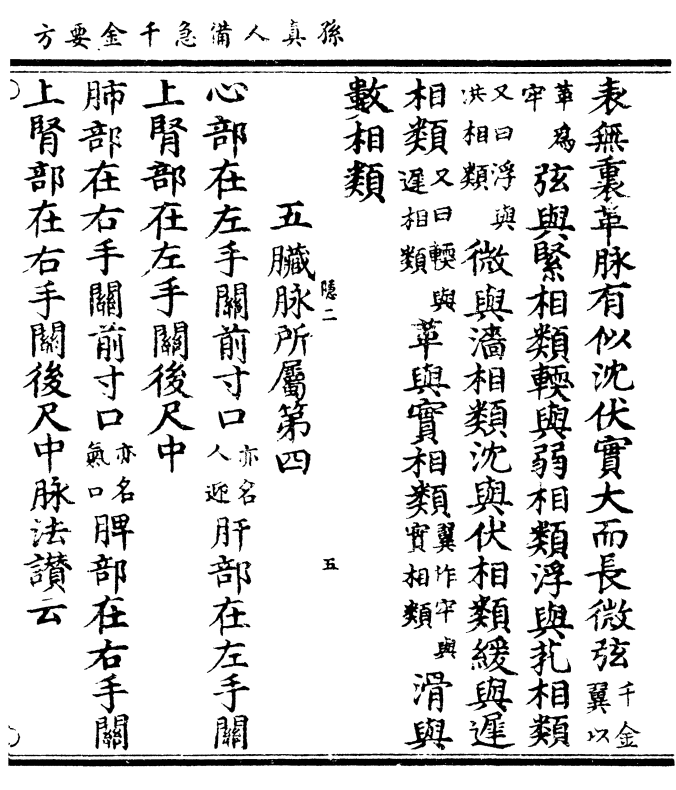 孫真人備急千金要方
表無裏革脉有似沈伏實大而長微弦千金翼以
革為牢弦與緊相類輭與弱相類浮與芤相類
又曰浮與洪相類微與濇相類沈與伏相類緩與遲
相類又曰輭與遲相類革與實相類翼作牢與實相類滑與
數相類
五臟脉所屬第四
隱二
五
心部在左手關前寸口亦名人迎肝部在左手關
上腎部在左手關後尺中
肺部在右手關前寸口亦名氣口脾部在右手關
上腎部在右手關後尺中脉法讃云